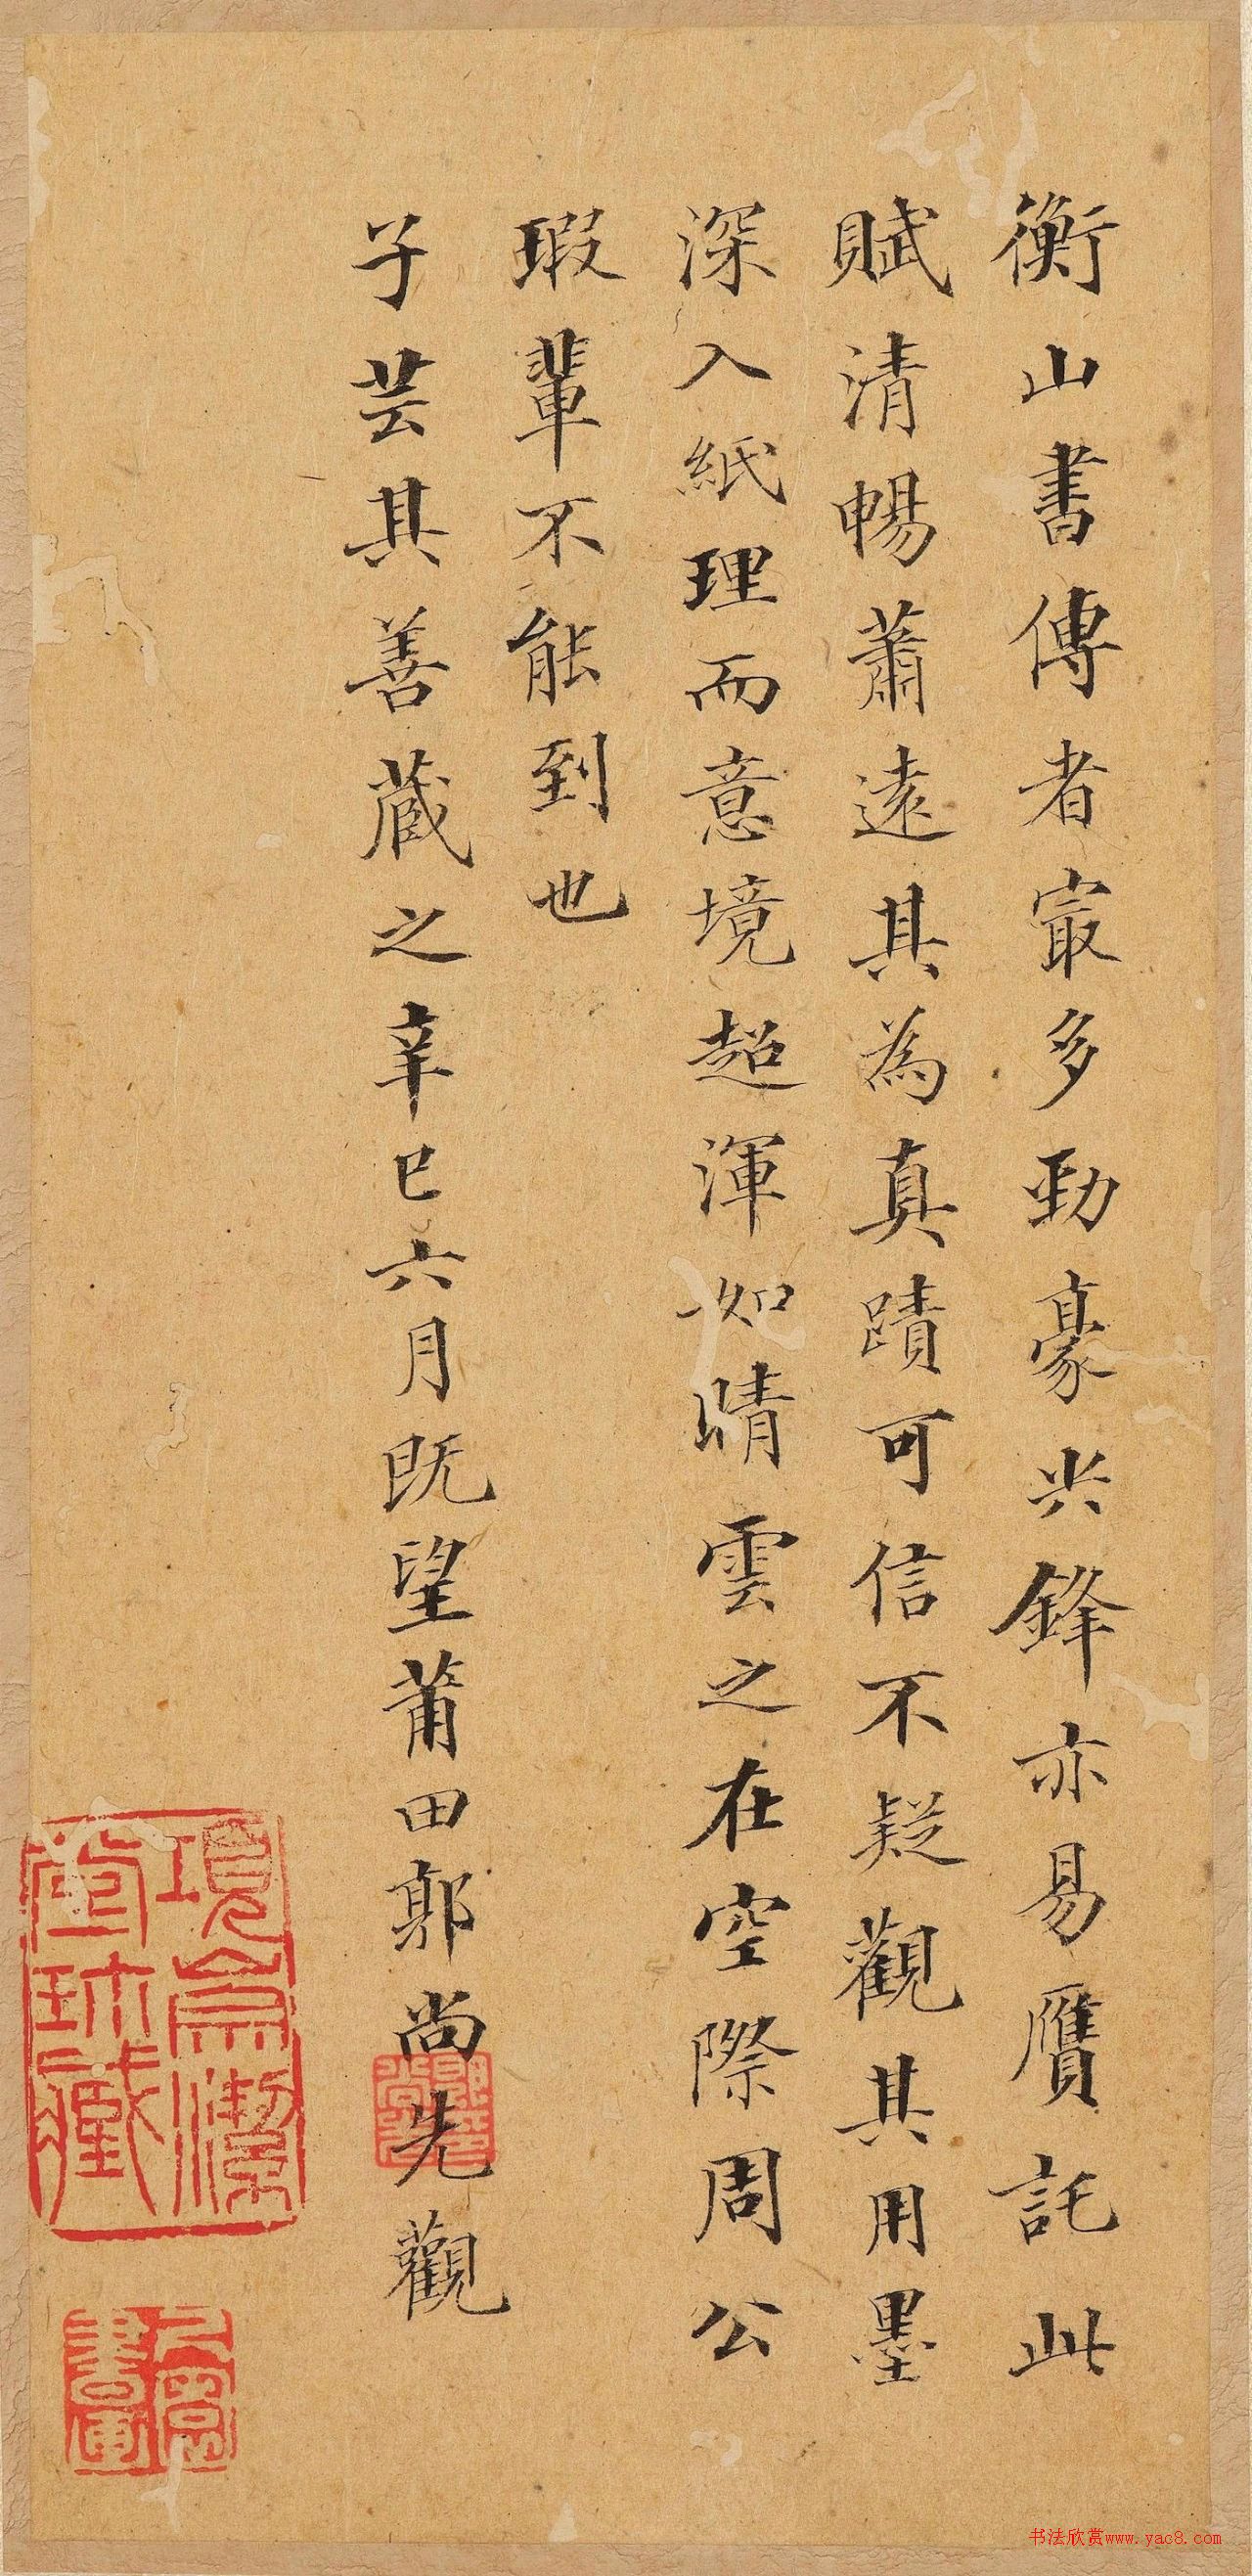 衡山書傳者㝡多勁豪尖鋒亦易贋託此
賦清暢蕭遠其為真蹟可信不疑觀其用墨
深入紙理而意境超渾如晴雲之在空際周公
瑕輩不能到也
子芸其善藏之辛巳六月既望莆田郭尚先觀
郭印尚先
書法欣赏www.yac8.com